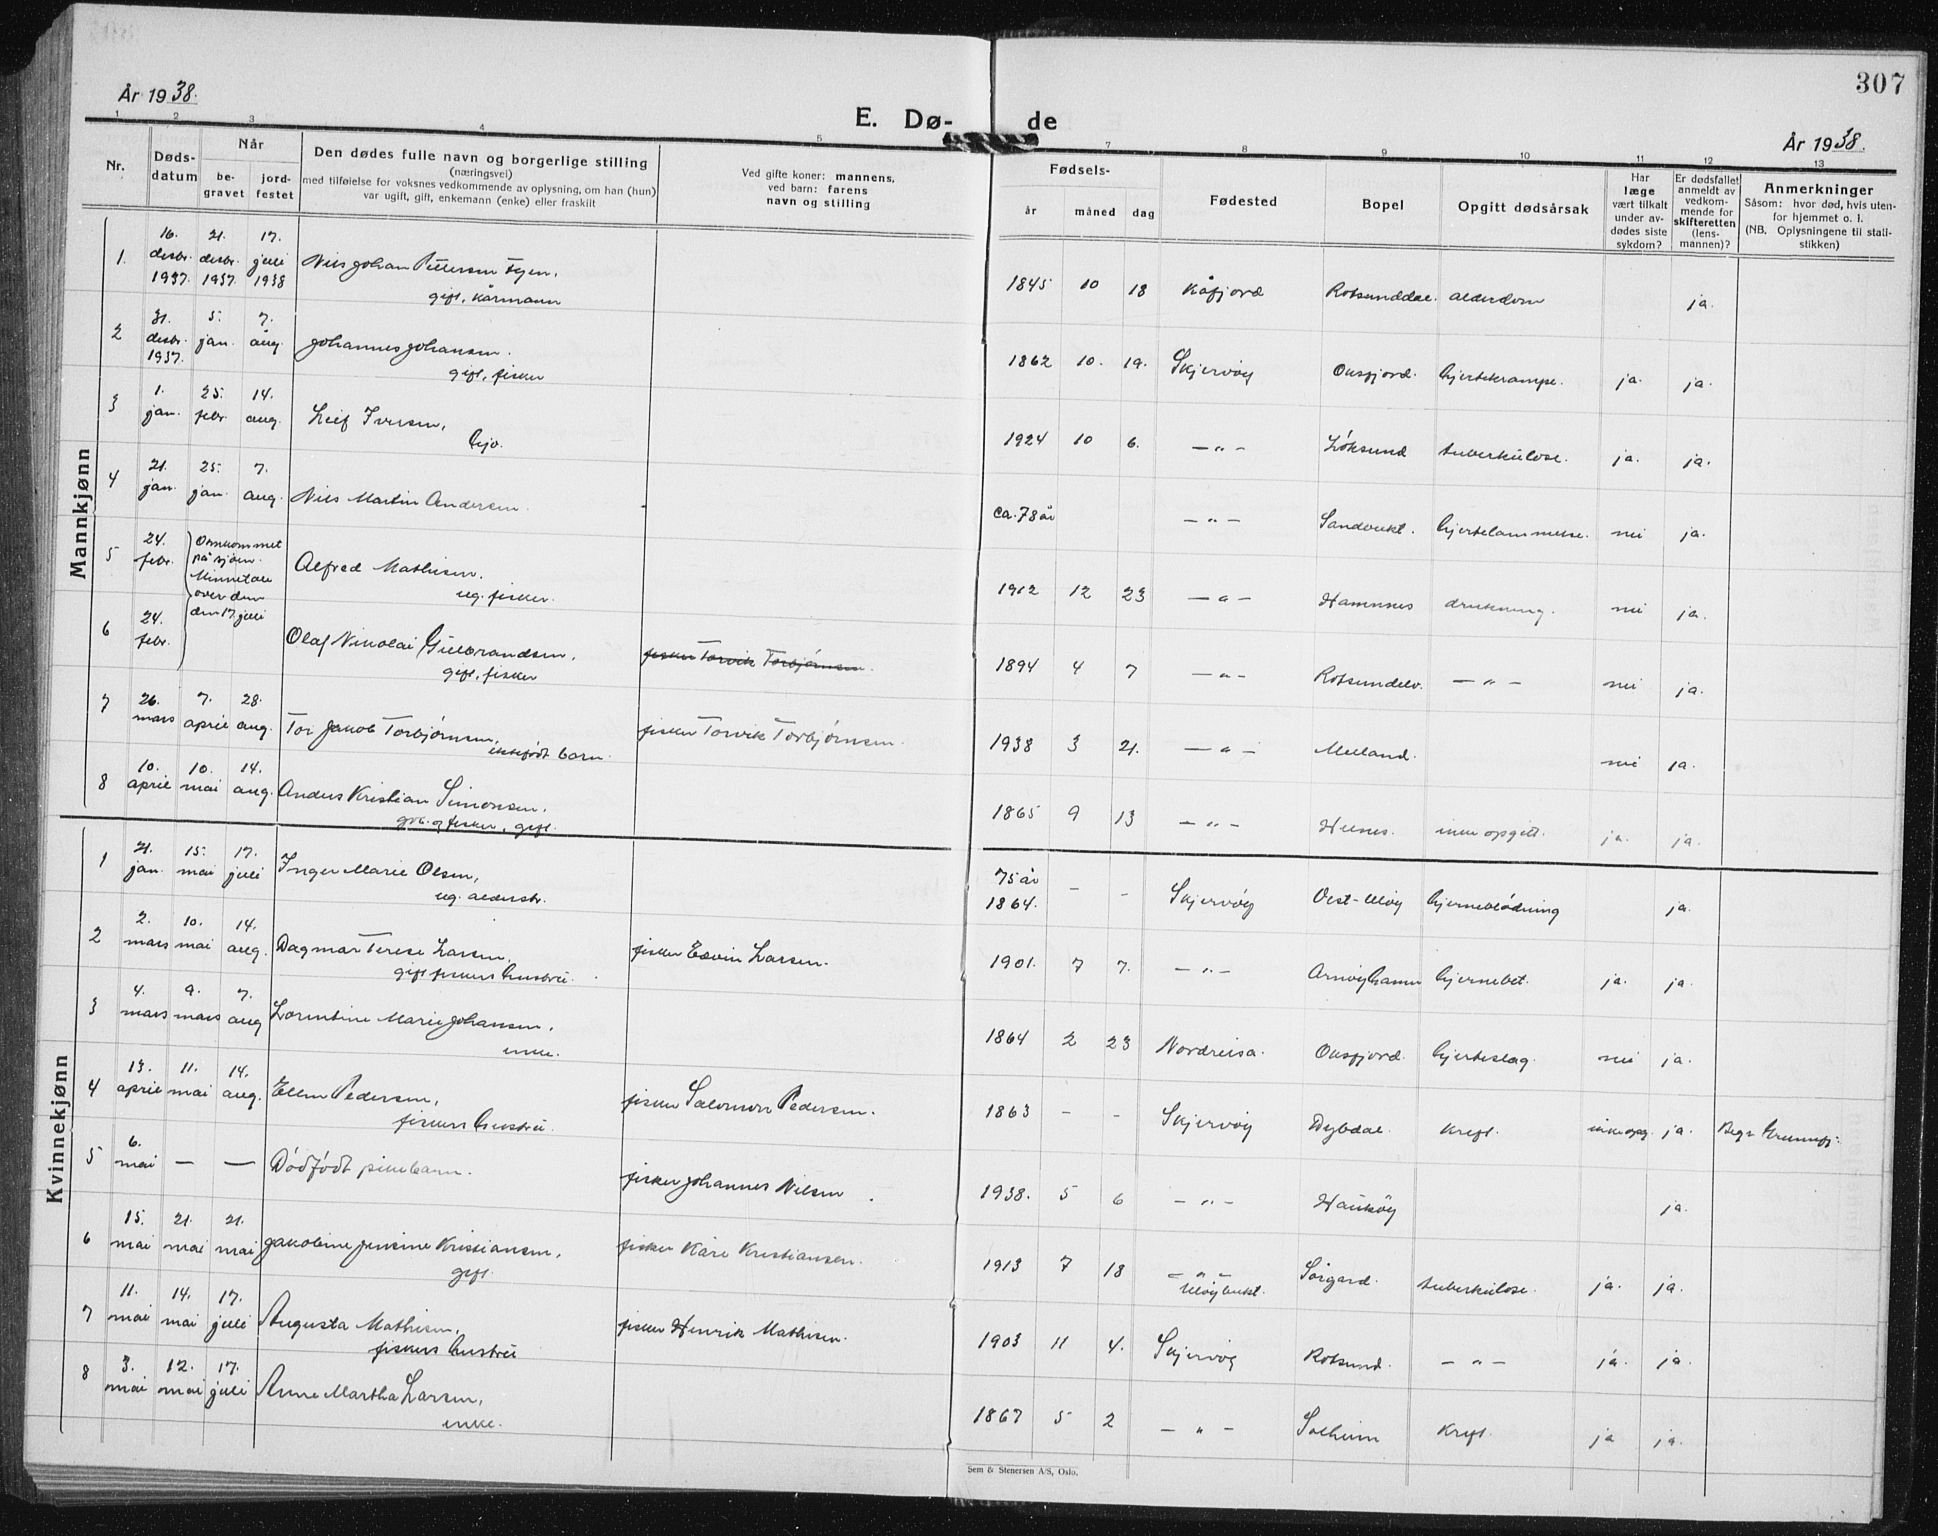 307
År 1938.
E. Dø- de
År 1938.
1 2 3 4 5 7 8 9 10 11 12 13
Nr.
Døds-
datum
Når
be-
gravet
jord-
festet
Den dødes fulle navn og borgerlige stilling
(næringsvei)
med tilføielse for voksnes vedkommende av oplysning, om han (hun)
var ugift, gift, enkemann (enke) eller fraskilt
Ved gifte koner: mannens,
ved barn: farens
navn og stilling
Fødsels-
år måned dag
Fødested
Bopel
Opgitt dødsårsak
Har
læge
vært tilkalt
under av-
dødes siste
sykdom?
Er dødsfallet
anmeldt av
vedkom-
mende for
skifteretten
(lens-
mannen)?
Anmerkninger
Såsom: hvor død, hvis uten-
for hjemmet o. l.
(NB. Oplysningene til stati-
stikken)
Mannkjønn
1. 16. desbr. 1937. 21. desbr. 1937. 17. juli 1938 Nils Johan Pettersen
gift, kårmann 1845 10 18 Kåfjord Rotsunddal. alderdom ja.
2 31. desbr. 1937. 5. jan. 7. aug. Johannes Johansen.
gift, fisker 1862 10. 19. Skjervøy Oksfjord. hjertekrampe. ja. ja.
3 1. jan. 25. febr. 14. aug. Leif Iversen,
1924 10 6. — „ — Løksund tuberkulose. ja. ja.
4 21. jan. 25. jan. 7. aug. Nils Martin Andersen.
ca. 78 år — „ — Sandbukt. hjertelammelse. nei ja.
5 24. febr. Omkommet
på sjøen.
Minnetale
over dem
den 17 juli
Alfred Mathisen,
ug. fisker. 1912 12 23 — „ — Hamnnes drukning. nei ja.
6 24. febr. Olaf Nikolai Gulbrandsen,
gift, fisker fisker Torvik Torbjørnsen. 1894 4 7 — „ — Rotsundelv. — „ — nei ja.
7 26. mars 7. april 28. aug. Tor Jakob Torbjørnsen,
ektefødt barn. fisker Torvik Torbjørnsen. 1938 3 21. — „ — Meiland. nei ja.
8 10. april 10. mai 14. aug. Anders Kristian Simonsen,
gbr. og fisker, gift. 1865 9 13 — „ — ikke opgitt. ja. ja.
Kvinnekjønn
1 21. jan. 15. mai 17. juli Inger Marie Olsen,
ug. alderstr. 75 år
1864. - - Skjervøy Vest-Uløy hjerneblødning ja.
2 2. mars 10. mai 14. aug. Dagmar Terese Larsen,
gift fiskers hustru. fisker Edvin Larsen. 1901. 7 7. — „ — Arnøyhamn hjernebet. ja. ja.
3 4. mars 9. mars 7. aug Lorentine Marie Johansen,
enke. 1864 2 23 Nordreisa. Oksfjord. hjerteslag. nei ja.
4 13. april 11. mai 14. aug. Ellen Pedersen,
fiskers hustru. fisker Salomon Pedersen. 1863 - - Skjervøy Dybdal. kreft. ikke opg. ja.
5 6. mai — — Dødfødt pikebarn. fisker Johannes Nilsen. 1938. 5 6 — „ — Haukøy ja.
6 15. mai 21. mai 21. mai Jakobine Jensine Kristiansen,
gift. fisker Kåre Kristiansen. 1913 7 18 — „ —
Uløybukt. Sørgard. tuberkulose. ja. ja.
7 11. mai 14. mai 17. juli Augusta Mathisen,
fiskers hustru fisker Henrik Mathisen. 1903 11 4. Skjervøy Rotsund. — „ — ja. ja.
8 3. mai 12. mai 17. juli Anne Martha Larsen,
enke. 1867 5 2 — „ — Solheim kreft. ja ja.
Sem & Stenersen A/S, Oslo.